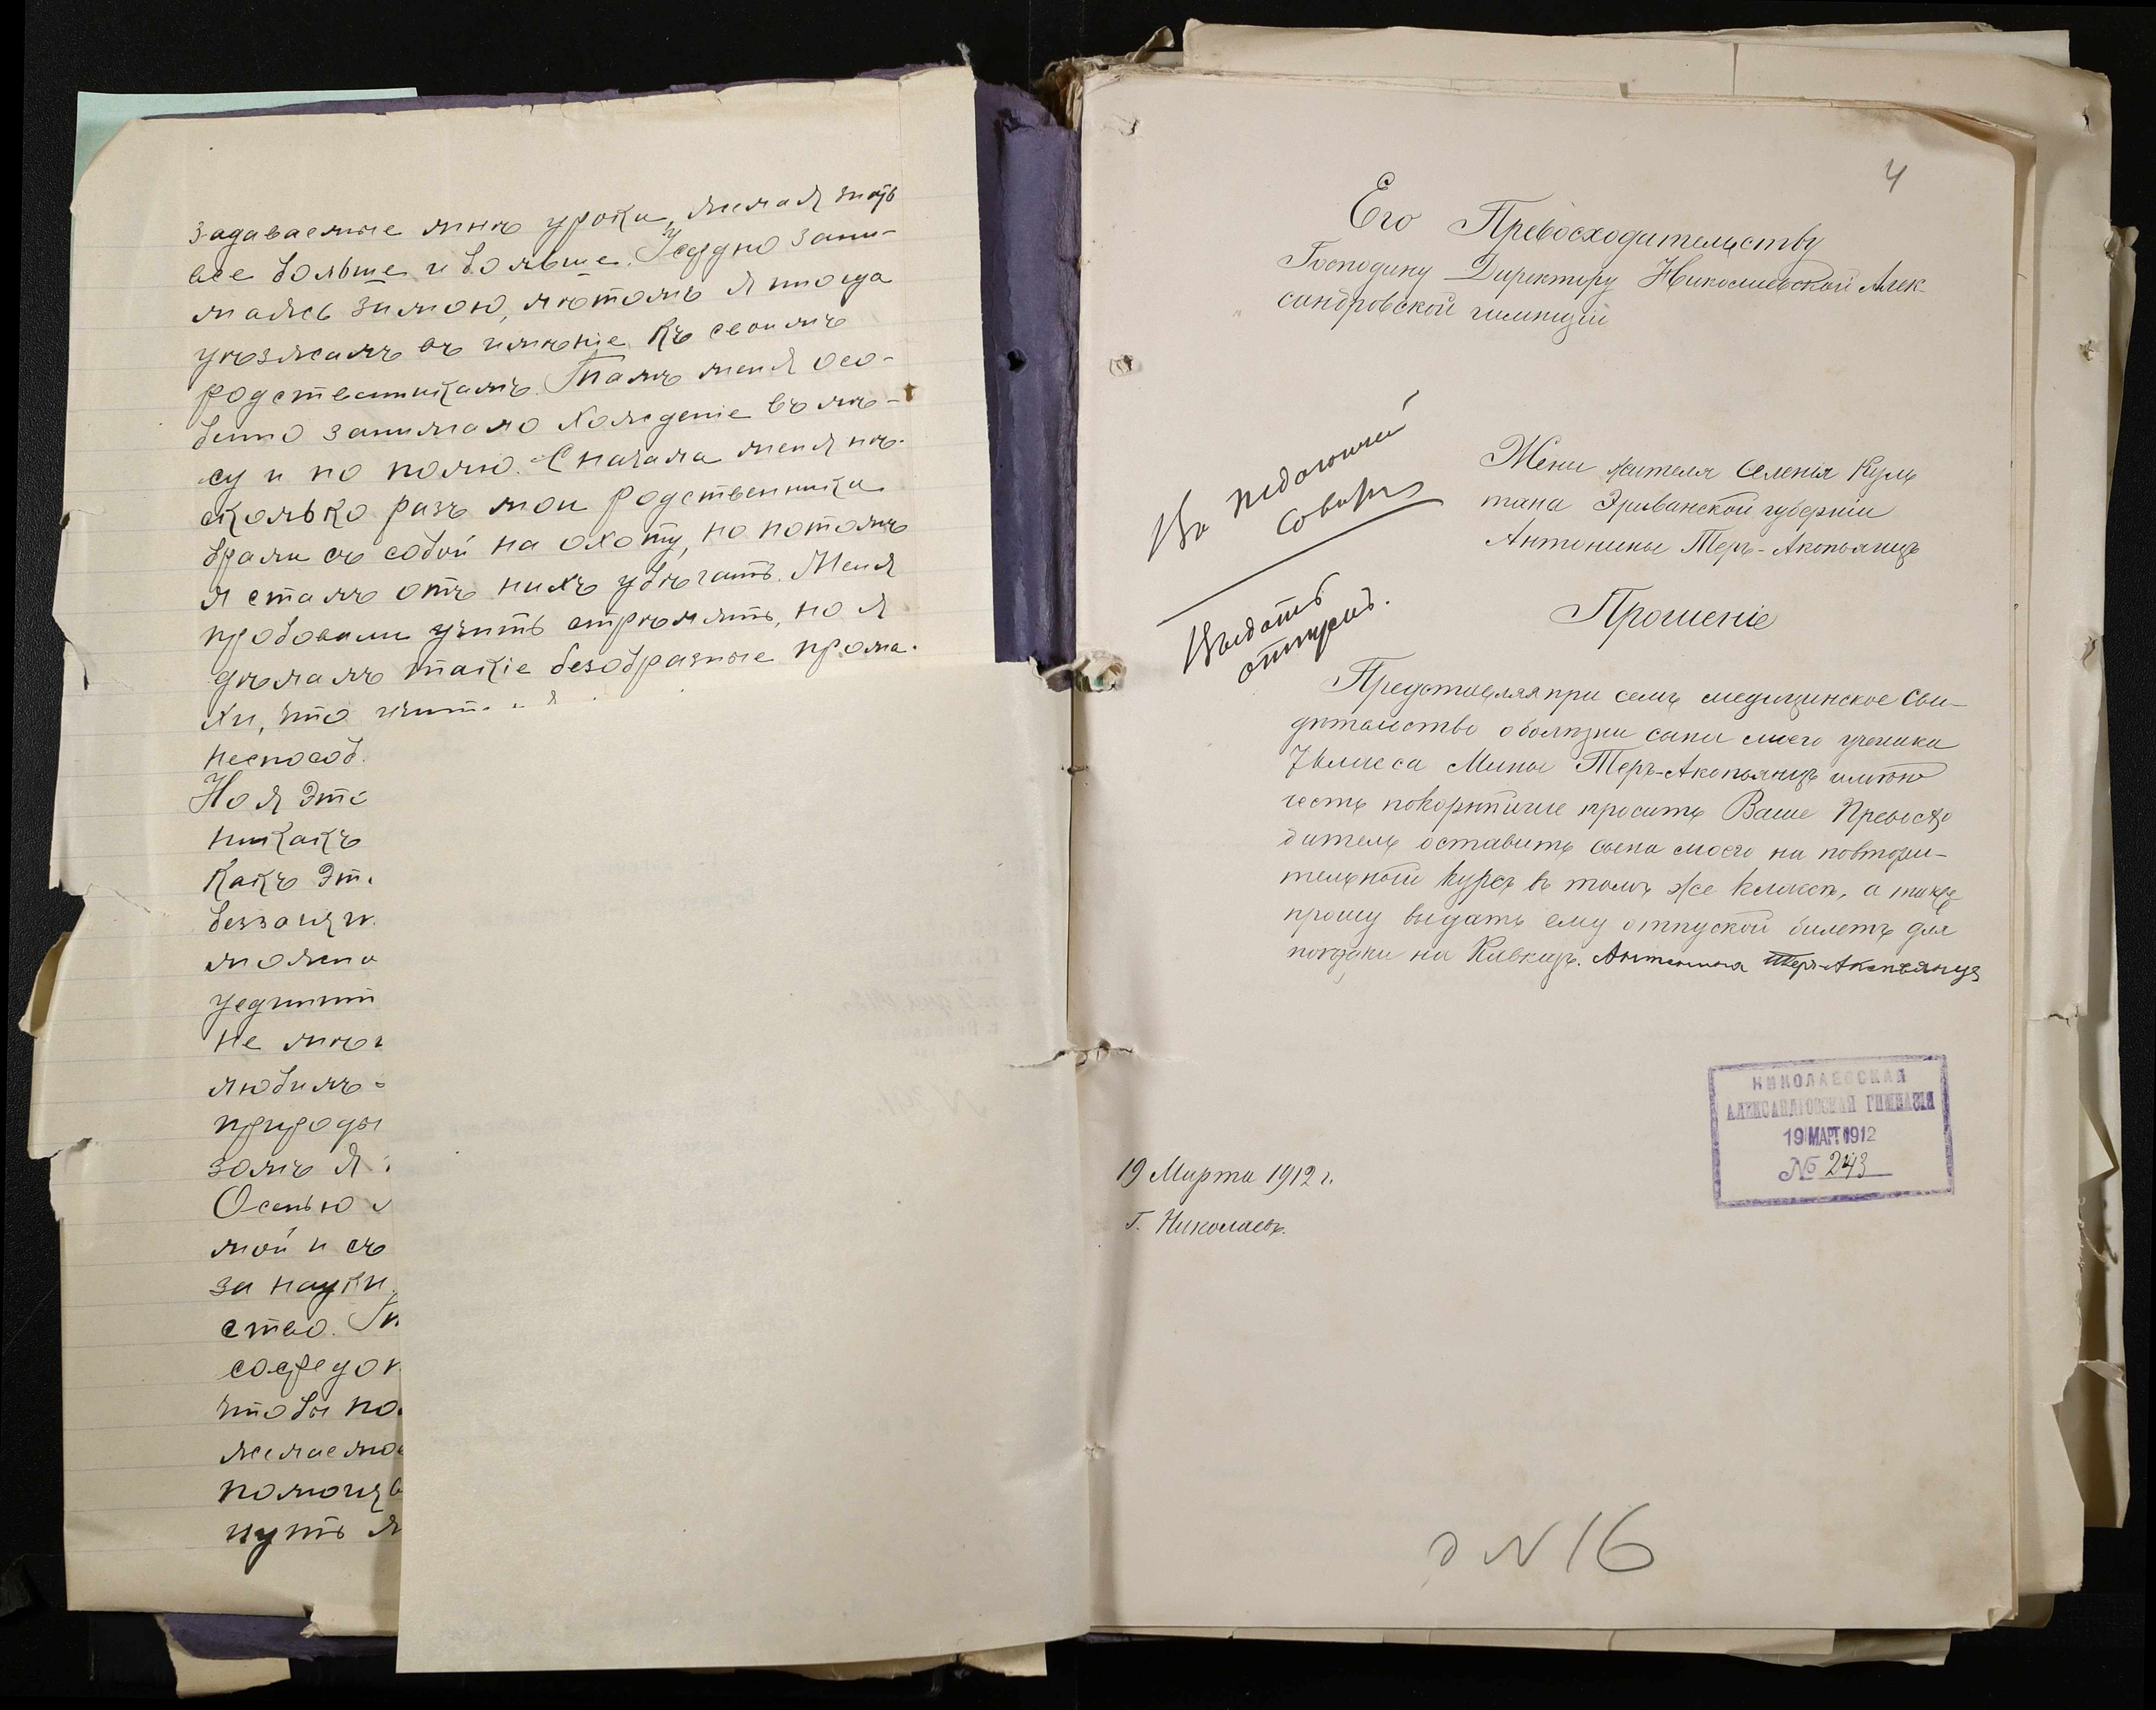 задаваемые мнѣ уроки, желая знать
все больше и больше. Усердно зани-
маясь зимою, лѣтомъ я иногда
уѣзжалъ въ имѣніе къ своимъ
родственникамъ. Тамъ меня осо-
бенно занимало хожденіе въ лѣ-
су и по полю. Сначала меня нѣ-
сколько разъ мои родственники
брали съ собой на охоту, но потомъ
я сталъ отъ нихъ убѣгать. Меня
пробовали учить стрѣлять, но я
дѣлалъ такіе безобразные прома-
хи, что
неспособ
Но я это
никакъ
какъ эт
беззащи
можно
уедин
не мног
любилъ
природы
зомъ я
Осенью
мой и съ
за науки
ство. Т
сосредот
чтобы по
желаемо
помощь
нуть я
4
Его Превосходительству
Господину Директору Николаевской Алек-
сандровской гимназіи
На педагогичес
совѣтъ
Выдать
отпускъ.
Жены жителя селенія Куль
тана Эриванской губерніи
Антонины Теръ-Акопьянцъ
Прошеніе
Представляя при семъ медицинское сви-
дѣтельство о болѣзни сына моего ученика
7 класса Мины Теръ-Акопьянцъ имѣю
честь покорнѣйше просить Ваше Превосхо
дитель оставить сына моего на повтори-
тельный курсъ въ томъ же классѣ, а также
прошу выдать ему отпуской билетъ для
поѣздки на Кавказъ. Антонина Теръ-Акопьянцъ
НИКОЛАЕВСКАЯ
АЛЕКСАНДРОВСКАЯ ГИМНАЗІЯ
19 МАРТ 1912
№ 243
19 Марта 1912 г.
Г. Николаевъ.
д N 16